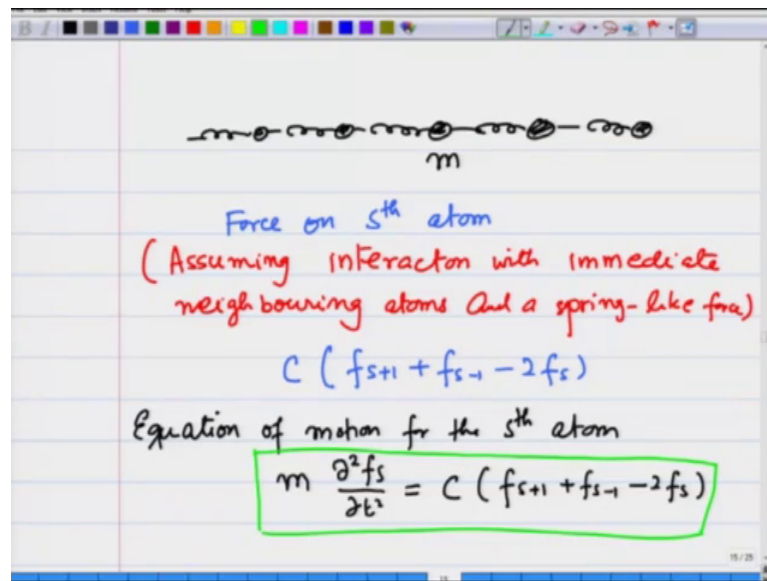 m
Force on sth atom
( Assuming interacton with immediate
neighbouring atoms and a spring-like force)
C ( fs+1 + fs-1 − 2fs )
Equation of motion for the sth atom
m ∂²fs/∂t² = C ( fs+1 + fs-1 − 2fs )
15 / 25